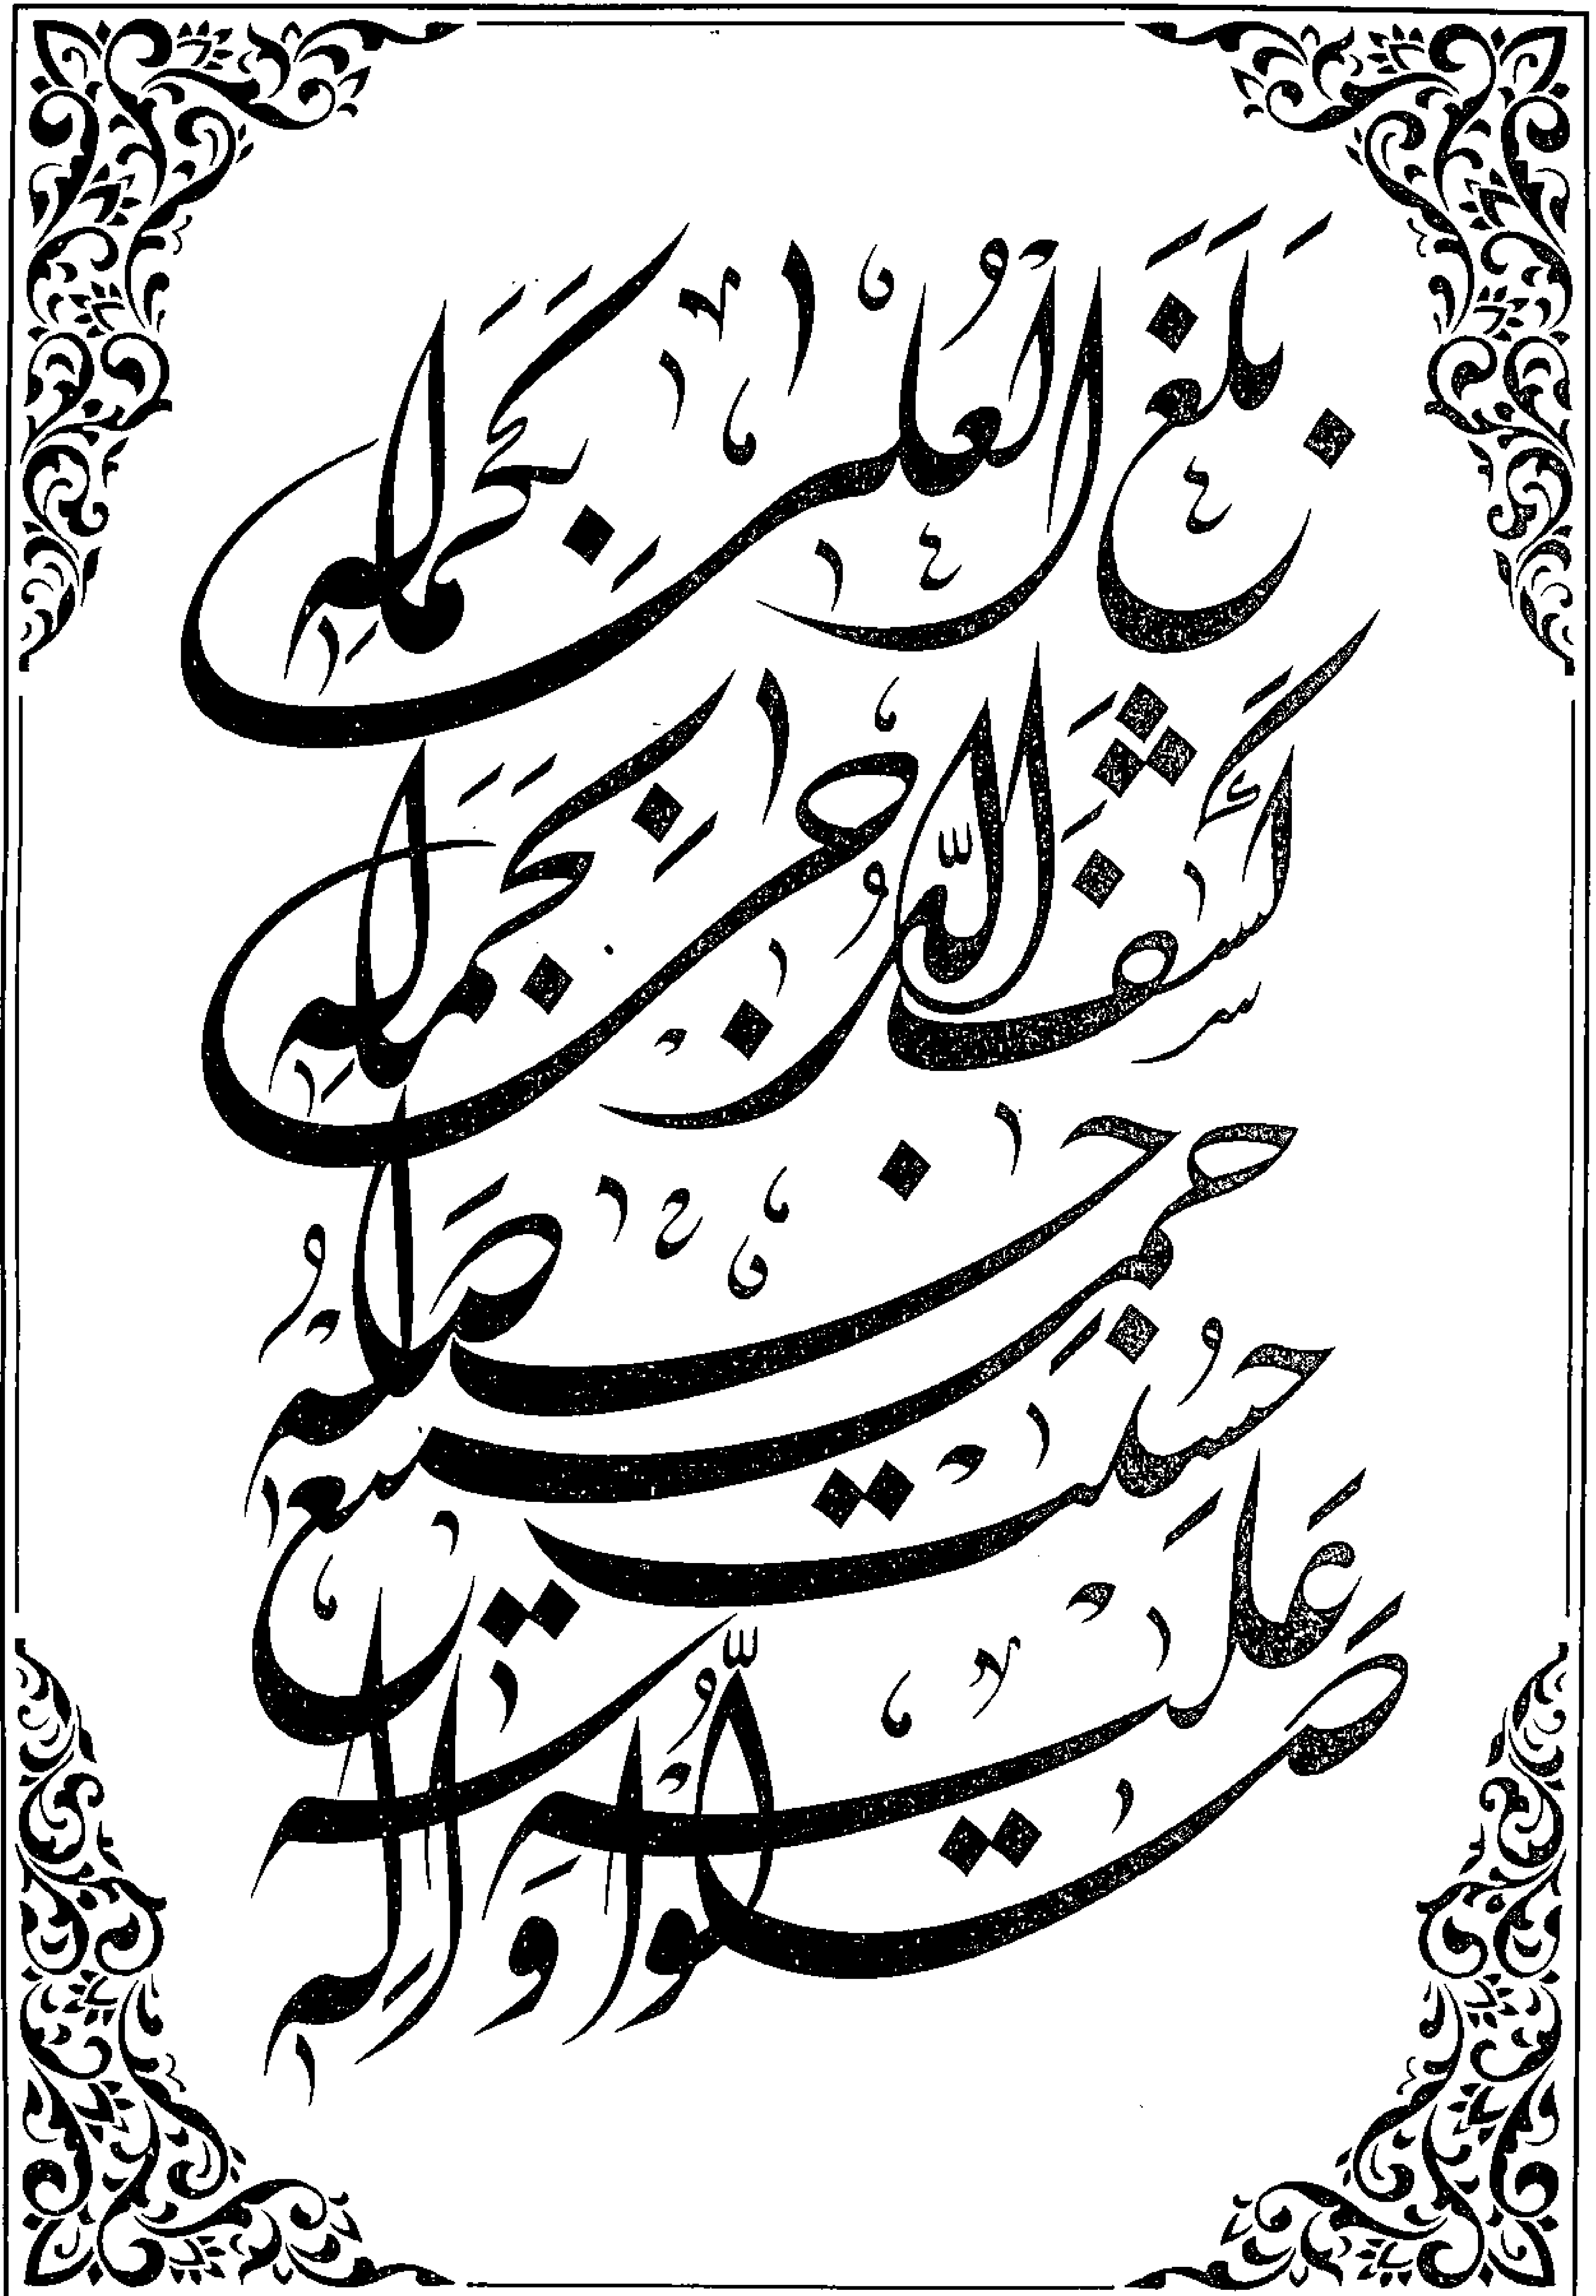 بَلَغَ الْعُلىٰ بِكَمَالِهٖ
كَشَفَ الدُّجىٰ بِجَمَالِهٖ
حَسُنَتْ جَمِيعُ خِصَالِهٖ
صَلُّوا عَلَيْهِ وَاٰلِهٖ